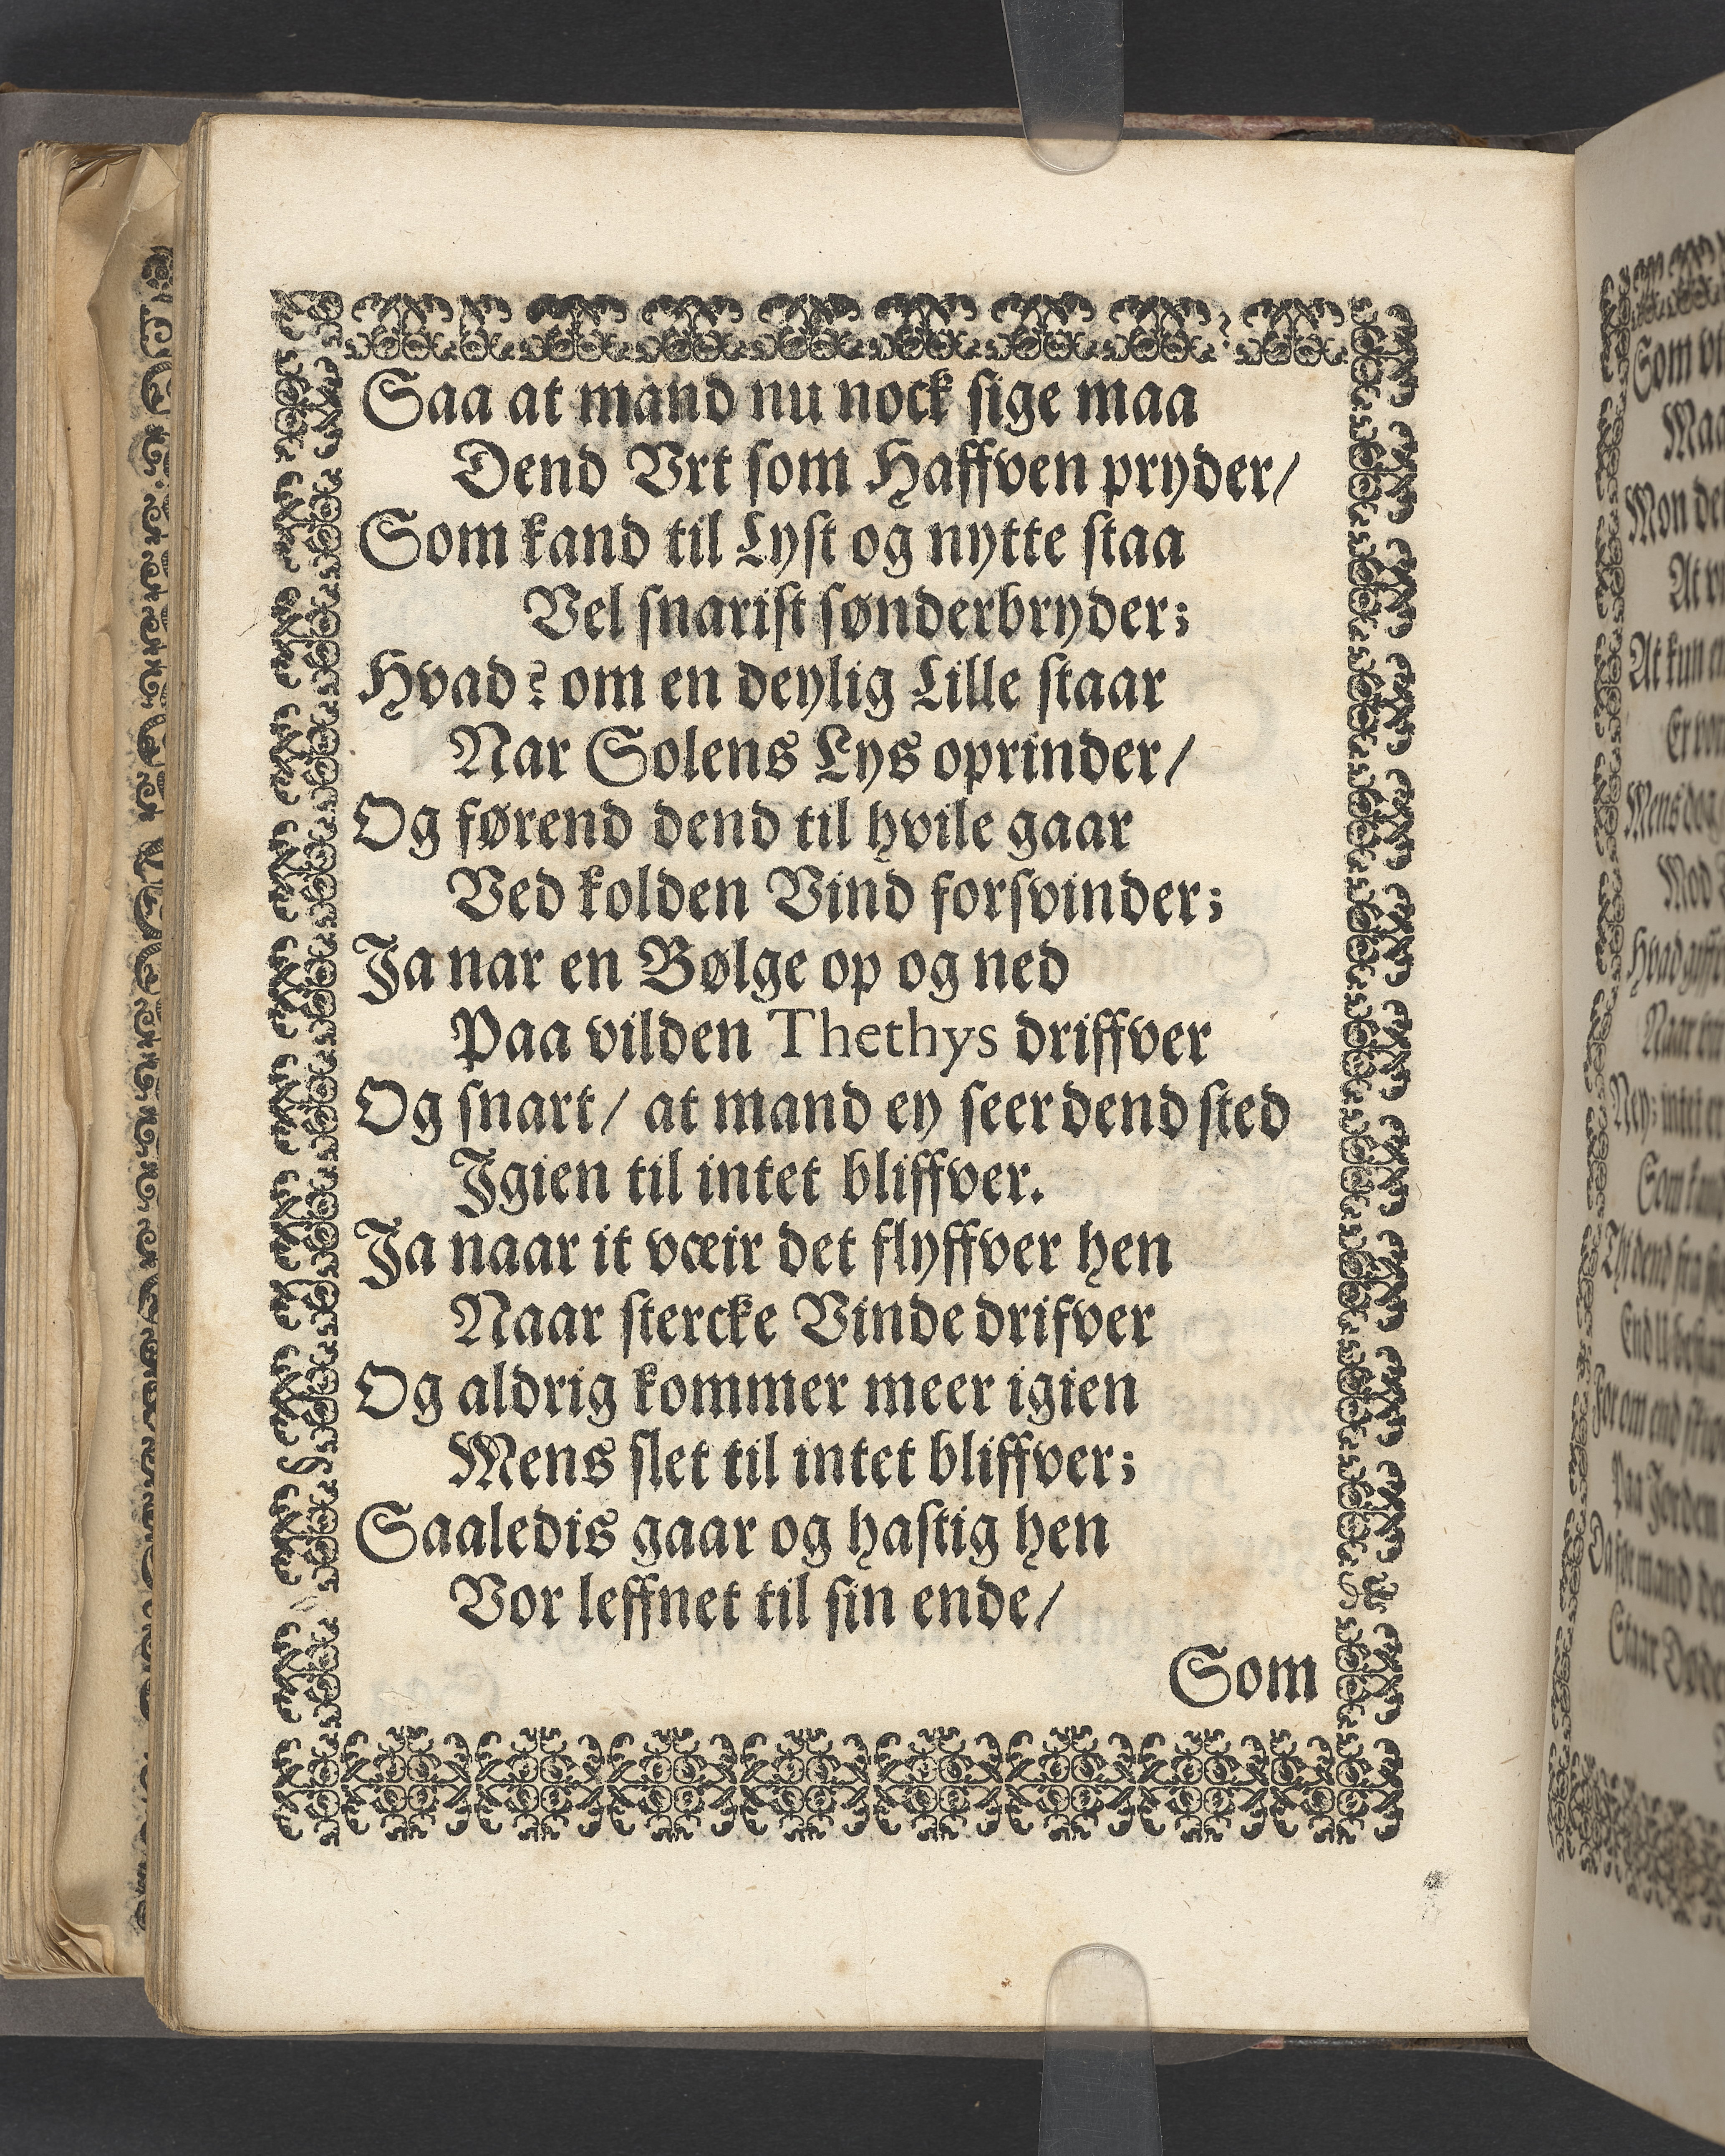 Saa at mand nu nock sige maa
Dend Vrt som Haffven pryder/
Som kand til Lyst og nytte staa
Vel snarist sønderbryder;
Hvad? om en deylig Lille staar
Nar Solens Lys oprinder/
Og førend dend til hvile gaar
Ved kolden Vind forsvinder;
Ja nar en Bølge op og ned
Paa vilden Thethys driffver
Og snart/ at mand ey seer dend sted
Igien til intet bliffver.
Ja naar it væir det flyffver hen
Naar stercke Vinde drifver
Og aldrig kommer meer igien
Mens slet til intet bliffver;
Saaledis gaar og hastig hen
Vor leffnet til sin ende/
Som
Som
Mon
At
At kun
Er
Mens dog
Mod
Naar
Ney; intet er
Som kand
End
For om end
Paa Jorden
Staar